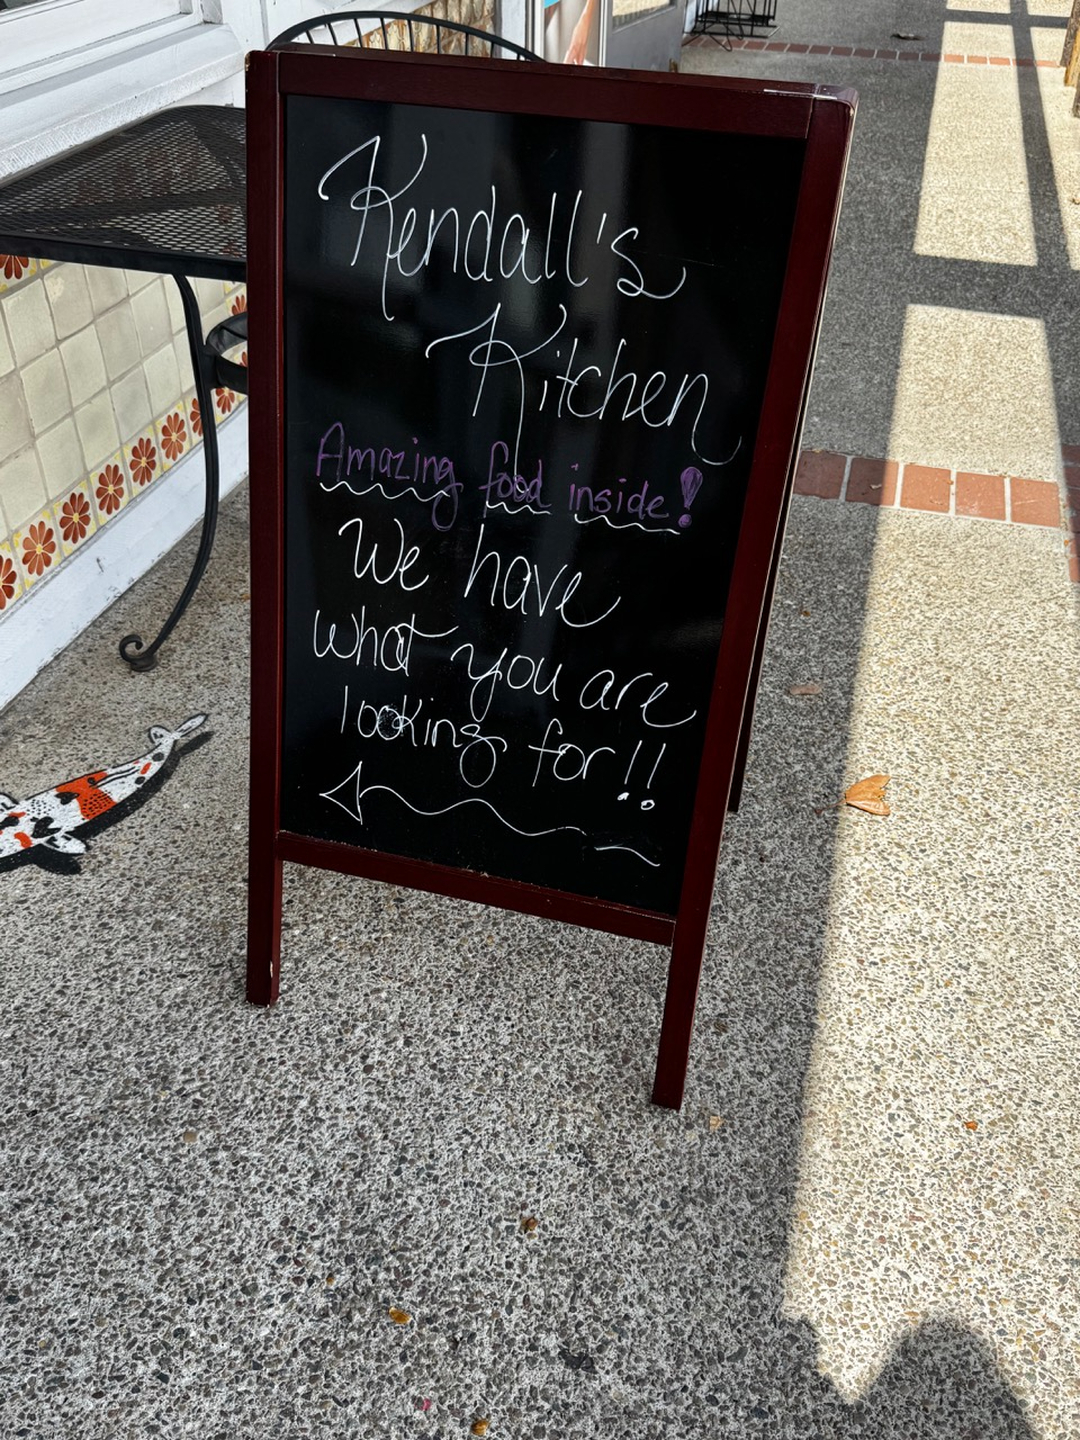 Kendall's
Kitchen
Amazing food inside!
We have
what you are
looking for!!